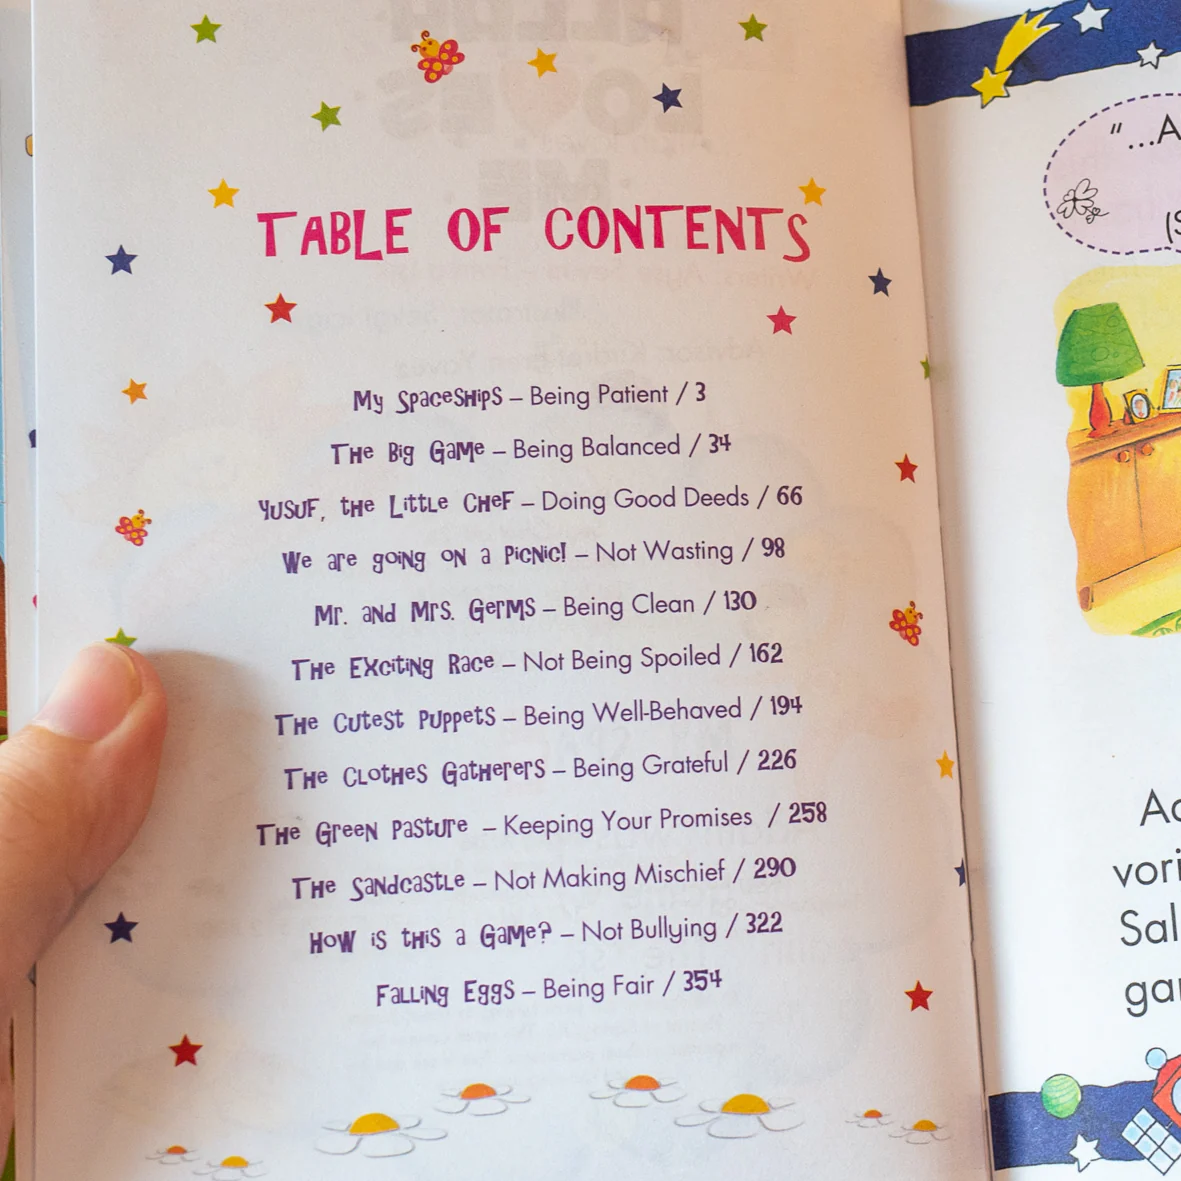 TABLE OF CONTENTS
My Spaceships – Being Patient / 3
The Big Game – Being Balanced / 34
Yusuf, the Little Chef – Doing Good Deeds / 66
We are going on a Picnic! – Not Wasting / 98
Mr. and Mrs. Germs – Being Clean / 130
The Exciting Race – Not Being Spoiled / 162
The Cutest Puppets – Being Well-Behaved / 194
The Clothes Gatherers – Being Grateful / 226
The Green Pasture – Keeping Your Promises / 258
The Sandcastle – Not Making Mischief / 290
How is this a Game? – Not Bullying / 322
Falling Eggs – Being Fair / 354
"...A
(S
Ac
vori
Sal
gar